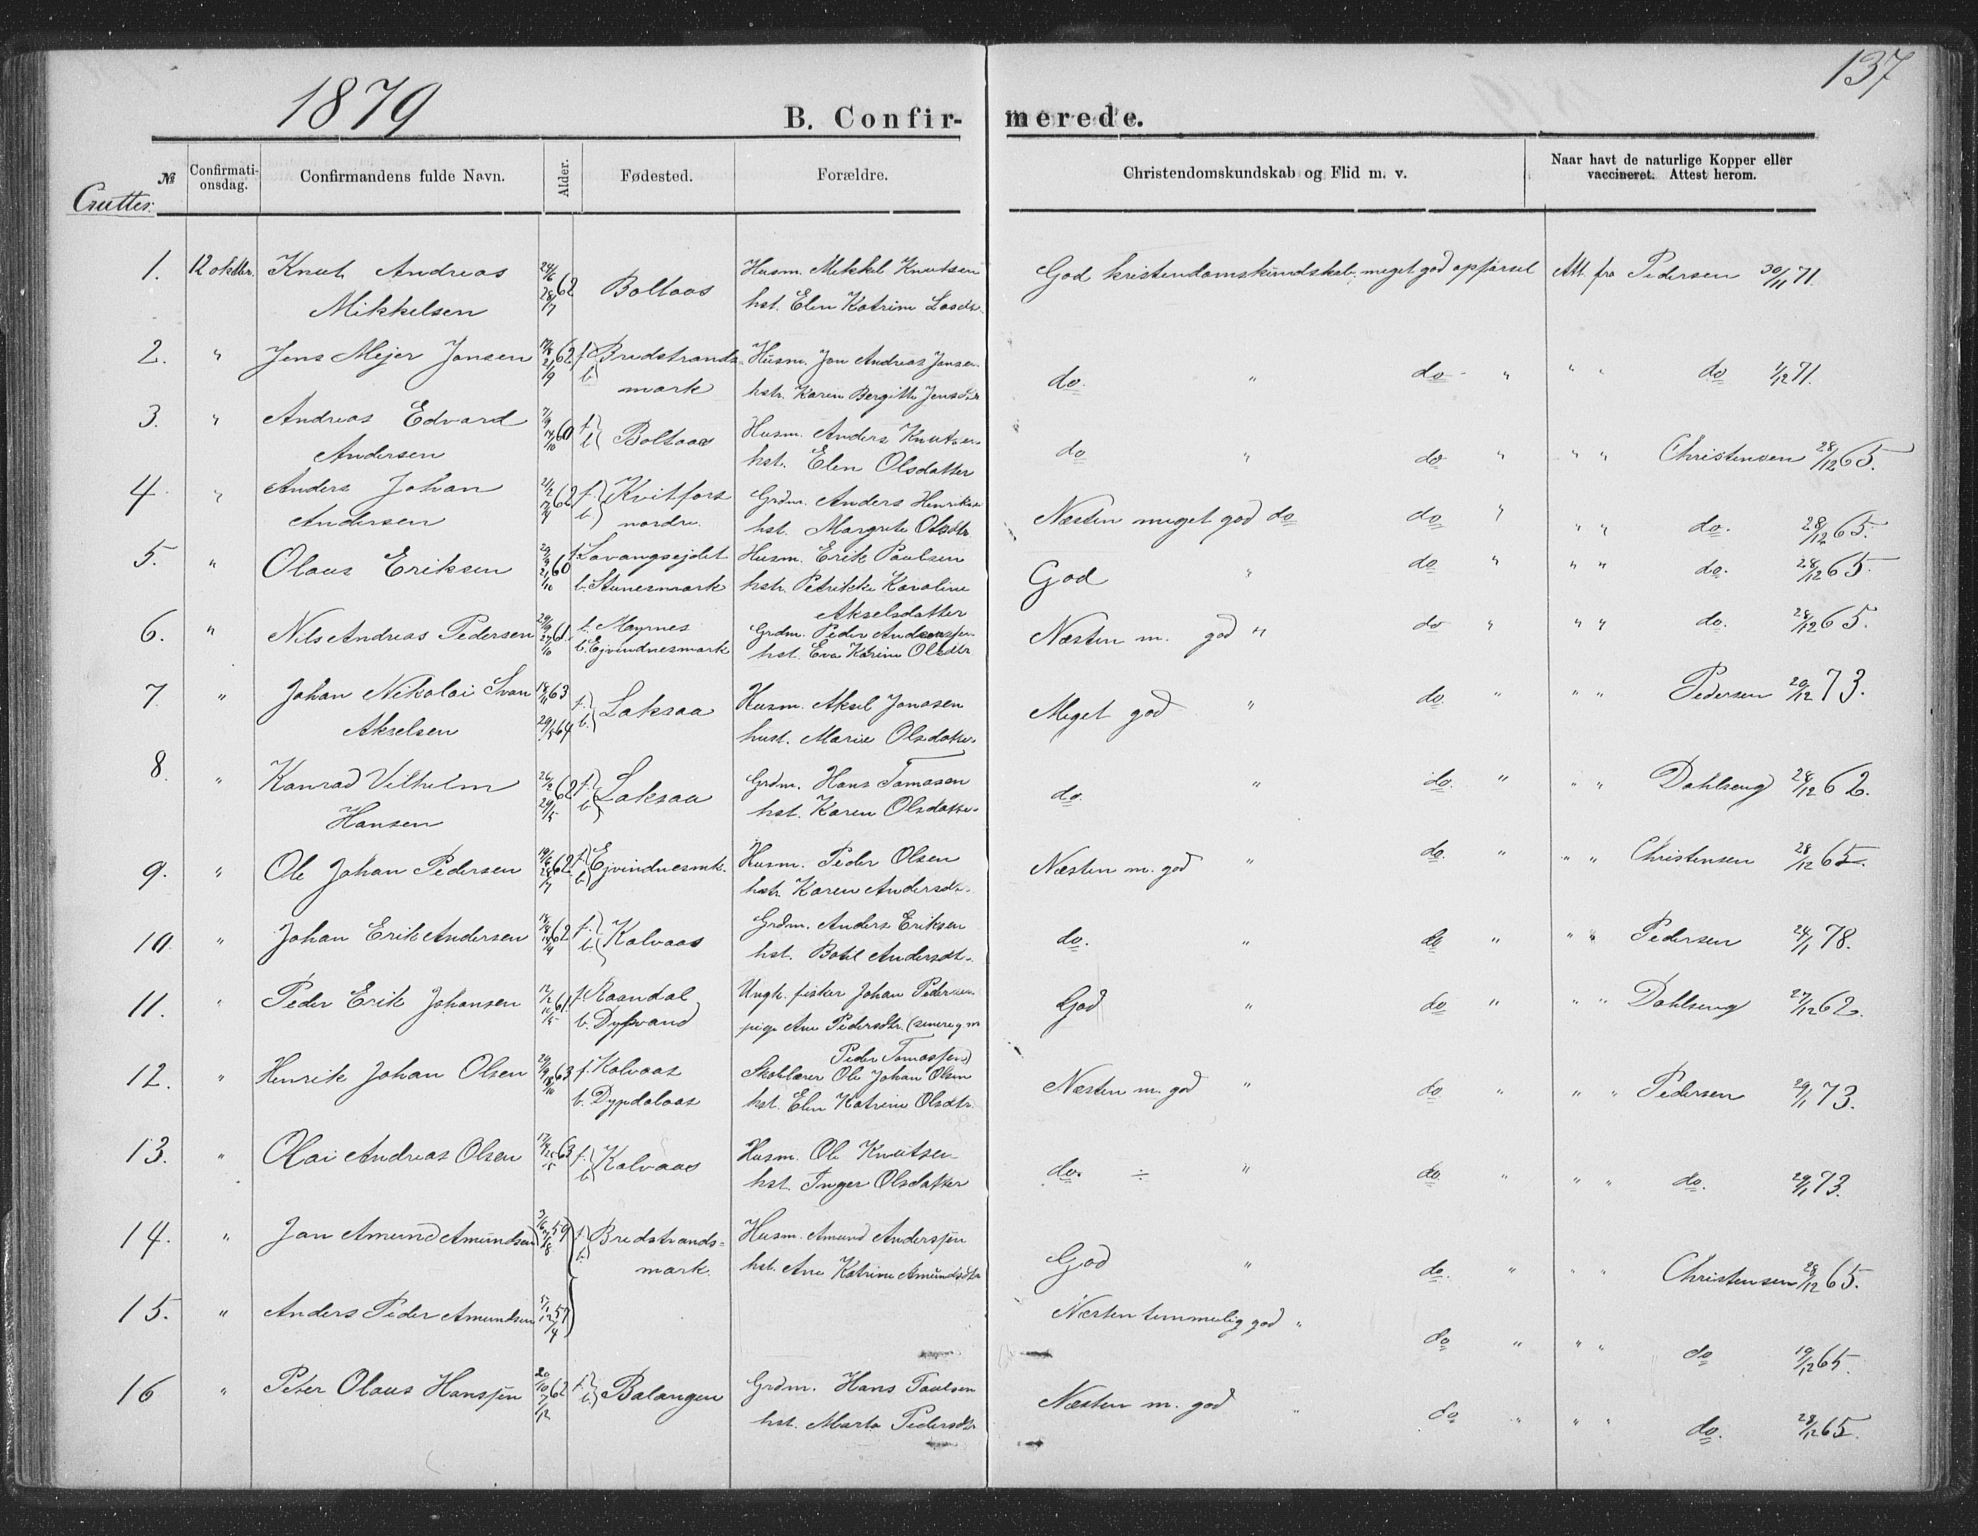 137
1879
B. Confirmerede.
№ Confirmationsdag. Confirmandens fulde Navn. Alder. Fødested. Forældre. Christendomskundskab og Flid m. v. Naar havt de naturlige Kopper eller vaccineret. Attest herom.
Gutter:
1. 12 oktbr. Knut Andreas 24/6 62 Boltaas Husm. Mikkel Knutsen God kristendomskundskab, meget god opførsel Att. fra Pedersen 30/11 71.
Mikkelsen 28/7 hst. Elen Katrine
2. " Jens Mejer Jonsen 62 f. Bredstrands- Husm. Jon Andreas Jensen do. " do " " " do 1/12 71.
21/9 b. mark hstr. Karen Bergitte Jensdtr
3. " Andreas Edvard 7/9 60 f. Boltaas Husm. Anders Knutsen do " do " " " Christensen 28/12 65.
Andersen 14/10 b. hst. Elen Olsdatter
4. " Anders Johan 21/2 62 f. Kvitfors Grdm. Anders Henriksen Næsten meget god do do " " " do. 28/12 65.
Andersen b. nordre. hst. Margrete Olsdtr
5. " Olaus Eriksen 29/9 60 f. Lavangsejdet Husm. Erik Paulsen God " do " " " do. 28/12 65.
21/10 b. Stunesmark hstr. Petrikke Karoline
Akselsdatter
6. " Nils Andreas Pedersen 29/9 61. f. Møyrnes Grdm. Peder Andreassen Næsten m. god " do " " " do. 28/12 65.
27/10 b. Ejvindnesmark hst. Eva Katrine Olsdtr
7. " Johan Nikolai Ivan 18/11 63 f. Laksaa Husm. Aksel Jonasen Meget god " do. " " " Pedersen 20/12 73.
Akselsen 64 b. hust. Marie Olsdatter
8. " Konrad Vilhelm 26/2 62 f. Laksaa Grdm. Hans Tomasen do. " do. " " " Dahlseng 28/12 62.
Hansen 29/5 b. hst. Karen Olsdatter
9. " Ole Johan Pedersen 19/6 62. f. Ejvindnesmk. Husm. Peder Olsen Næsten m. god " do. " " " Christensen 28/12 65.
28/7 b. hstr. Karen Andersdtr.
10. " Johan Erik Andersen 62 f. Kalvaas Grdm. Anders Eriksen do. " do " " " Pedersen 24/1 78.
14/9 b. hst. Botil Andersdtr.
11. " Peder Erik Johansen 12/2 61 f. Raandal Ungk. fisker Johan Pedersen God " do " " " Dahlseng 27/12 62.
10/5 b. Dypvand pige Ane Pedersdtr. (senere g. m
Peder Tomassen)
12. " Henrik Johan Olsen 29/9 63 f. Kalvaas Skolelærer Ole Johan Olsen Næsten m. god " do " " " Pedersen 29/1 73.
18/10 b. Dypdalaas hst. Elen Katrine Olsdtr.
13. " Olai Andreas Olsen 17/4 63 f. Kalvaas Husm. Ole Knutsen do. ÷ " do. " " " do. 29/1 73.
25/5 b. hst. Inger Olsdatter
14. " Jan Amund Amundsen 3/6 59 f. Bredstrands= Husm. Amund Anderssen God " do. " " " Christensen 28/12 65.
b. mark. hst. Ane Katrine Amundsdtr
15. " Anders Peder Amundsen 57 Næsten temmelig god " do " " " do 19/12 65.
16 " Peter Olaus Hanssen 20/10 62 f. Balangen Grdm. Hans Paulsen Næsten m. god " do " " " do. 28/12 65.
7/12 b. hst. Marta Pedersdtr